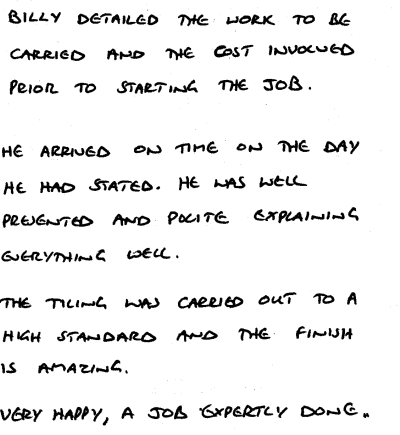 BILLY DETAILED THE WORK TO BE
CARRIED AND THE COST INVOLVED
PRIOR TO STARTING THE JOB.
HE ARRIVED ON TIME ON THE DAY
HE HAD STATED. HE WAS WELL
PRESENTED AND POLITE EXPLAINING
EVERYTHING WELL.
THE TILING WAS CARRIED OUT TO A
HIGH STANDARD AND THE FINISH
IS AMAZING.
VERY HAPPY, A JOB EXPERTLY DONE..